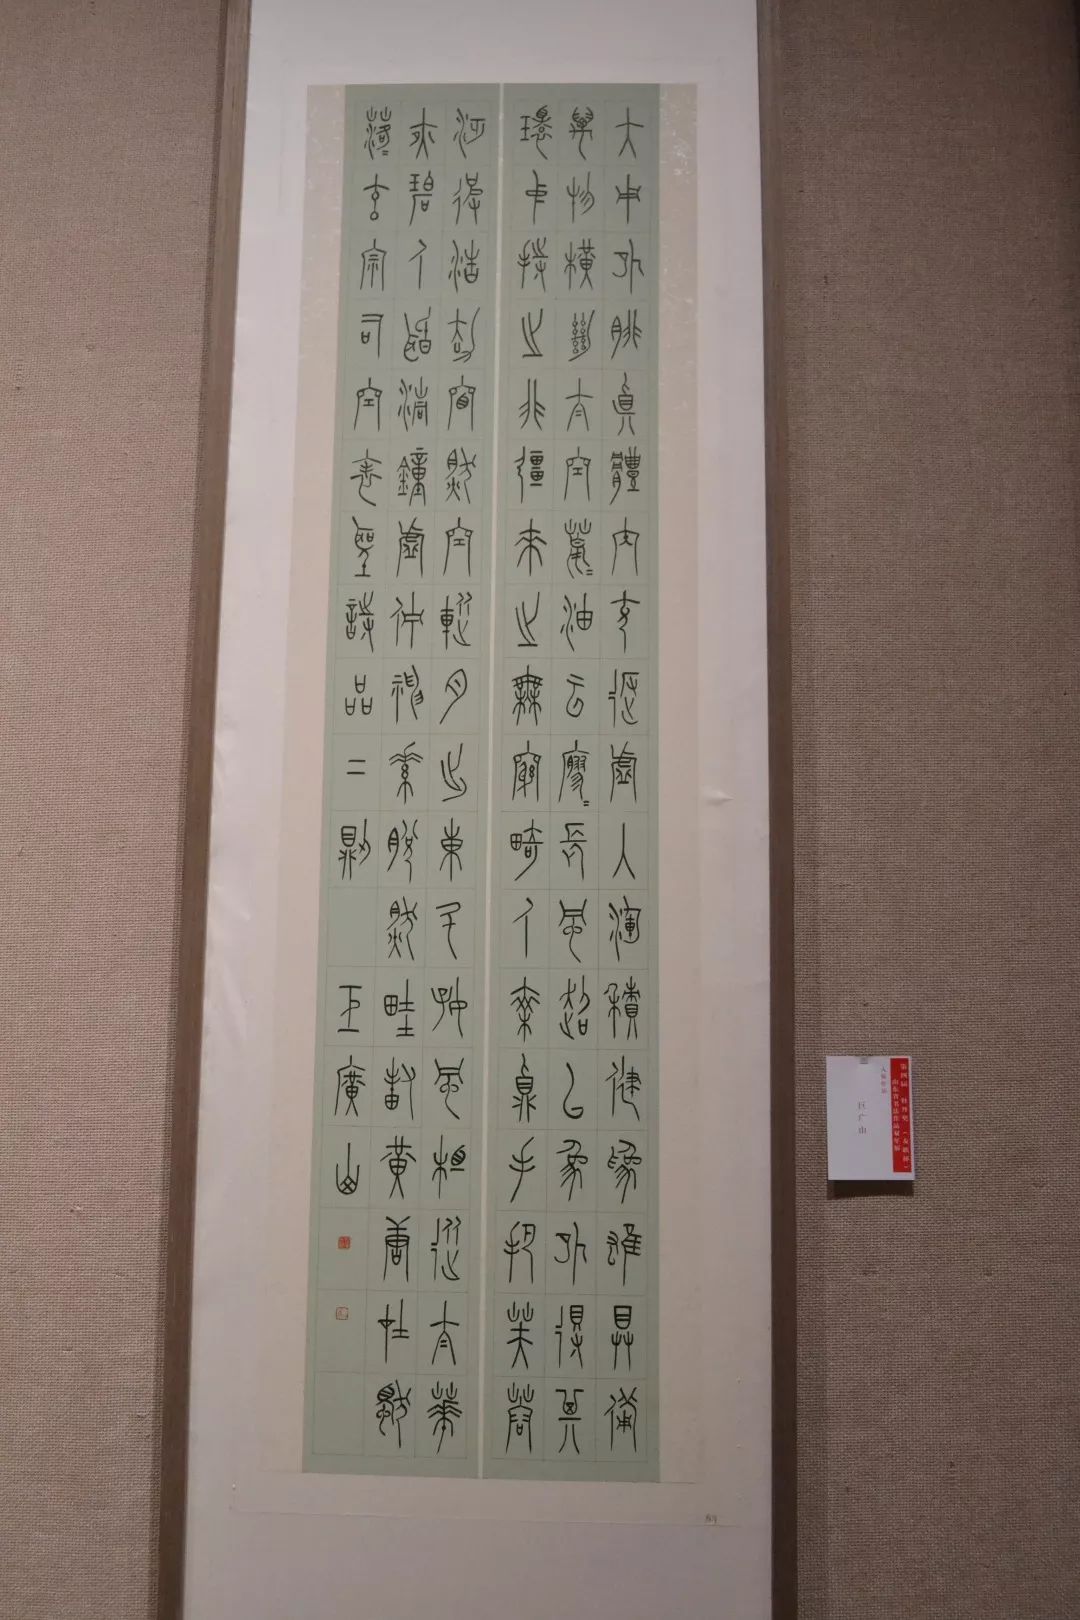 大用外腓真體內充返虛入渾積健為雄具備
萬物橫絕太空荒〻油云寥〻長風超以象外得其
環中持之非彊來之無窮畸人乘真手把芙蓉
泛彼浩劫窅然空蹤月出東斗好風相從太華
夜碧人聞清鐘虛佇神素脫然畦封黃唐在獨
落〻玄宗司空表聖詩品二則 巨廣山
第四届
山东省书法作品双年展
入展作品
巨广山